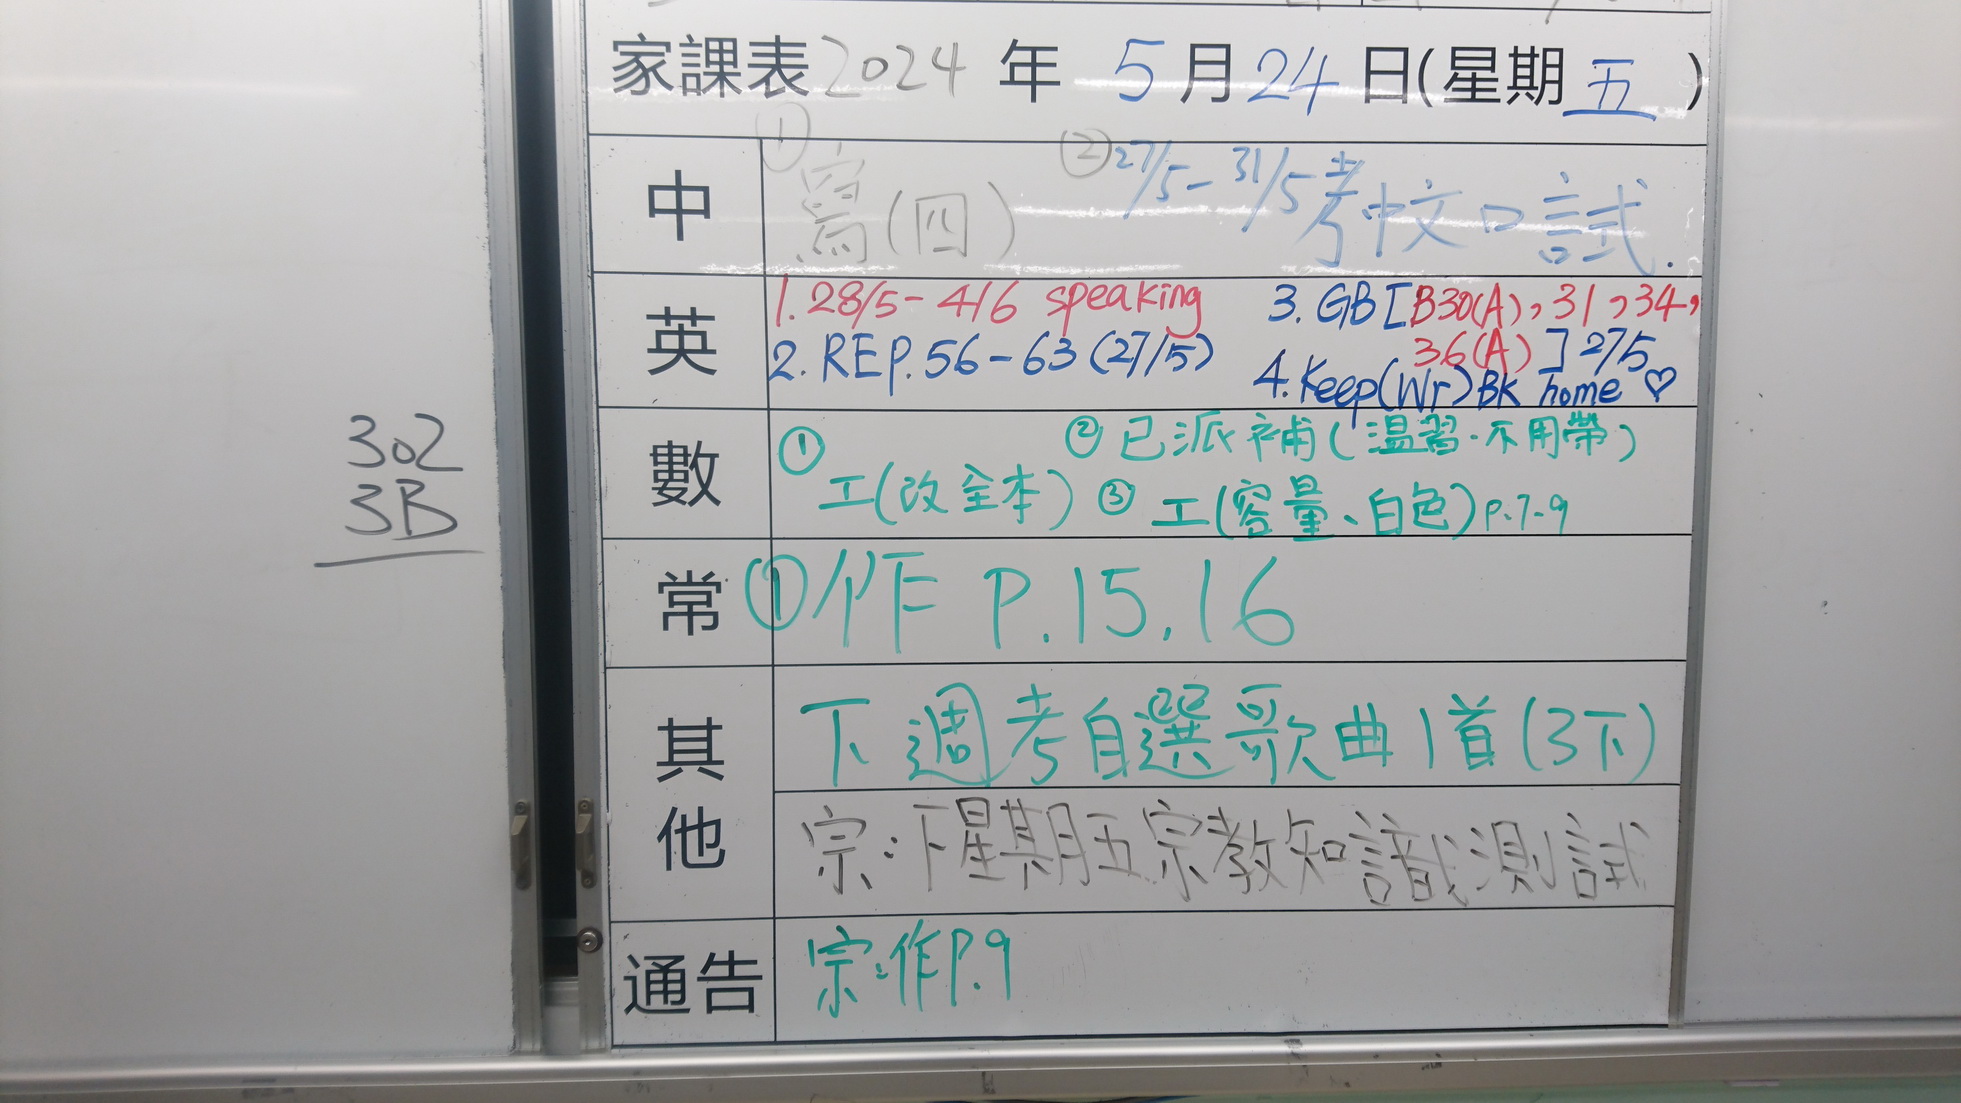 家課表2024年 5月24日(星期五)
中 ①寫(四) ②27/5-31/5考中文口試.
英 1.28/5-4/6 speaking
2. REP. 56-63 (27/5)
3. GB[B30(A), 31, 34,
36(A)] 27/5
4. Keep(Wr) BK home ♡
數 ①工(改全本)
②已派補(溫習.不用帶)
③工(容量、白色)P.7-9
常 ①作 P.15,16
其他 下週考自選歌曲1首(3下)
宗:下星期五宗教知識測試
通告 宗:作P.9
302
3B